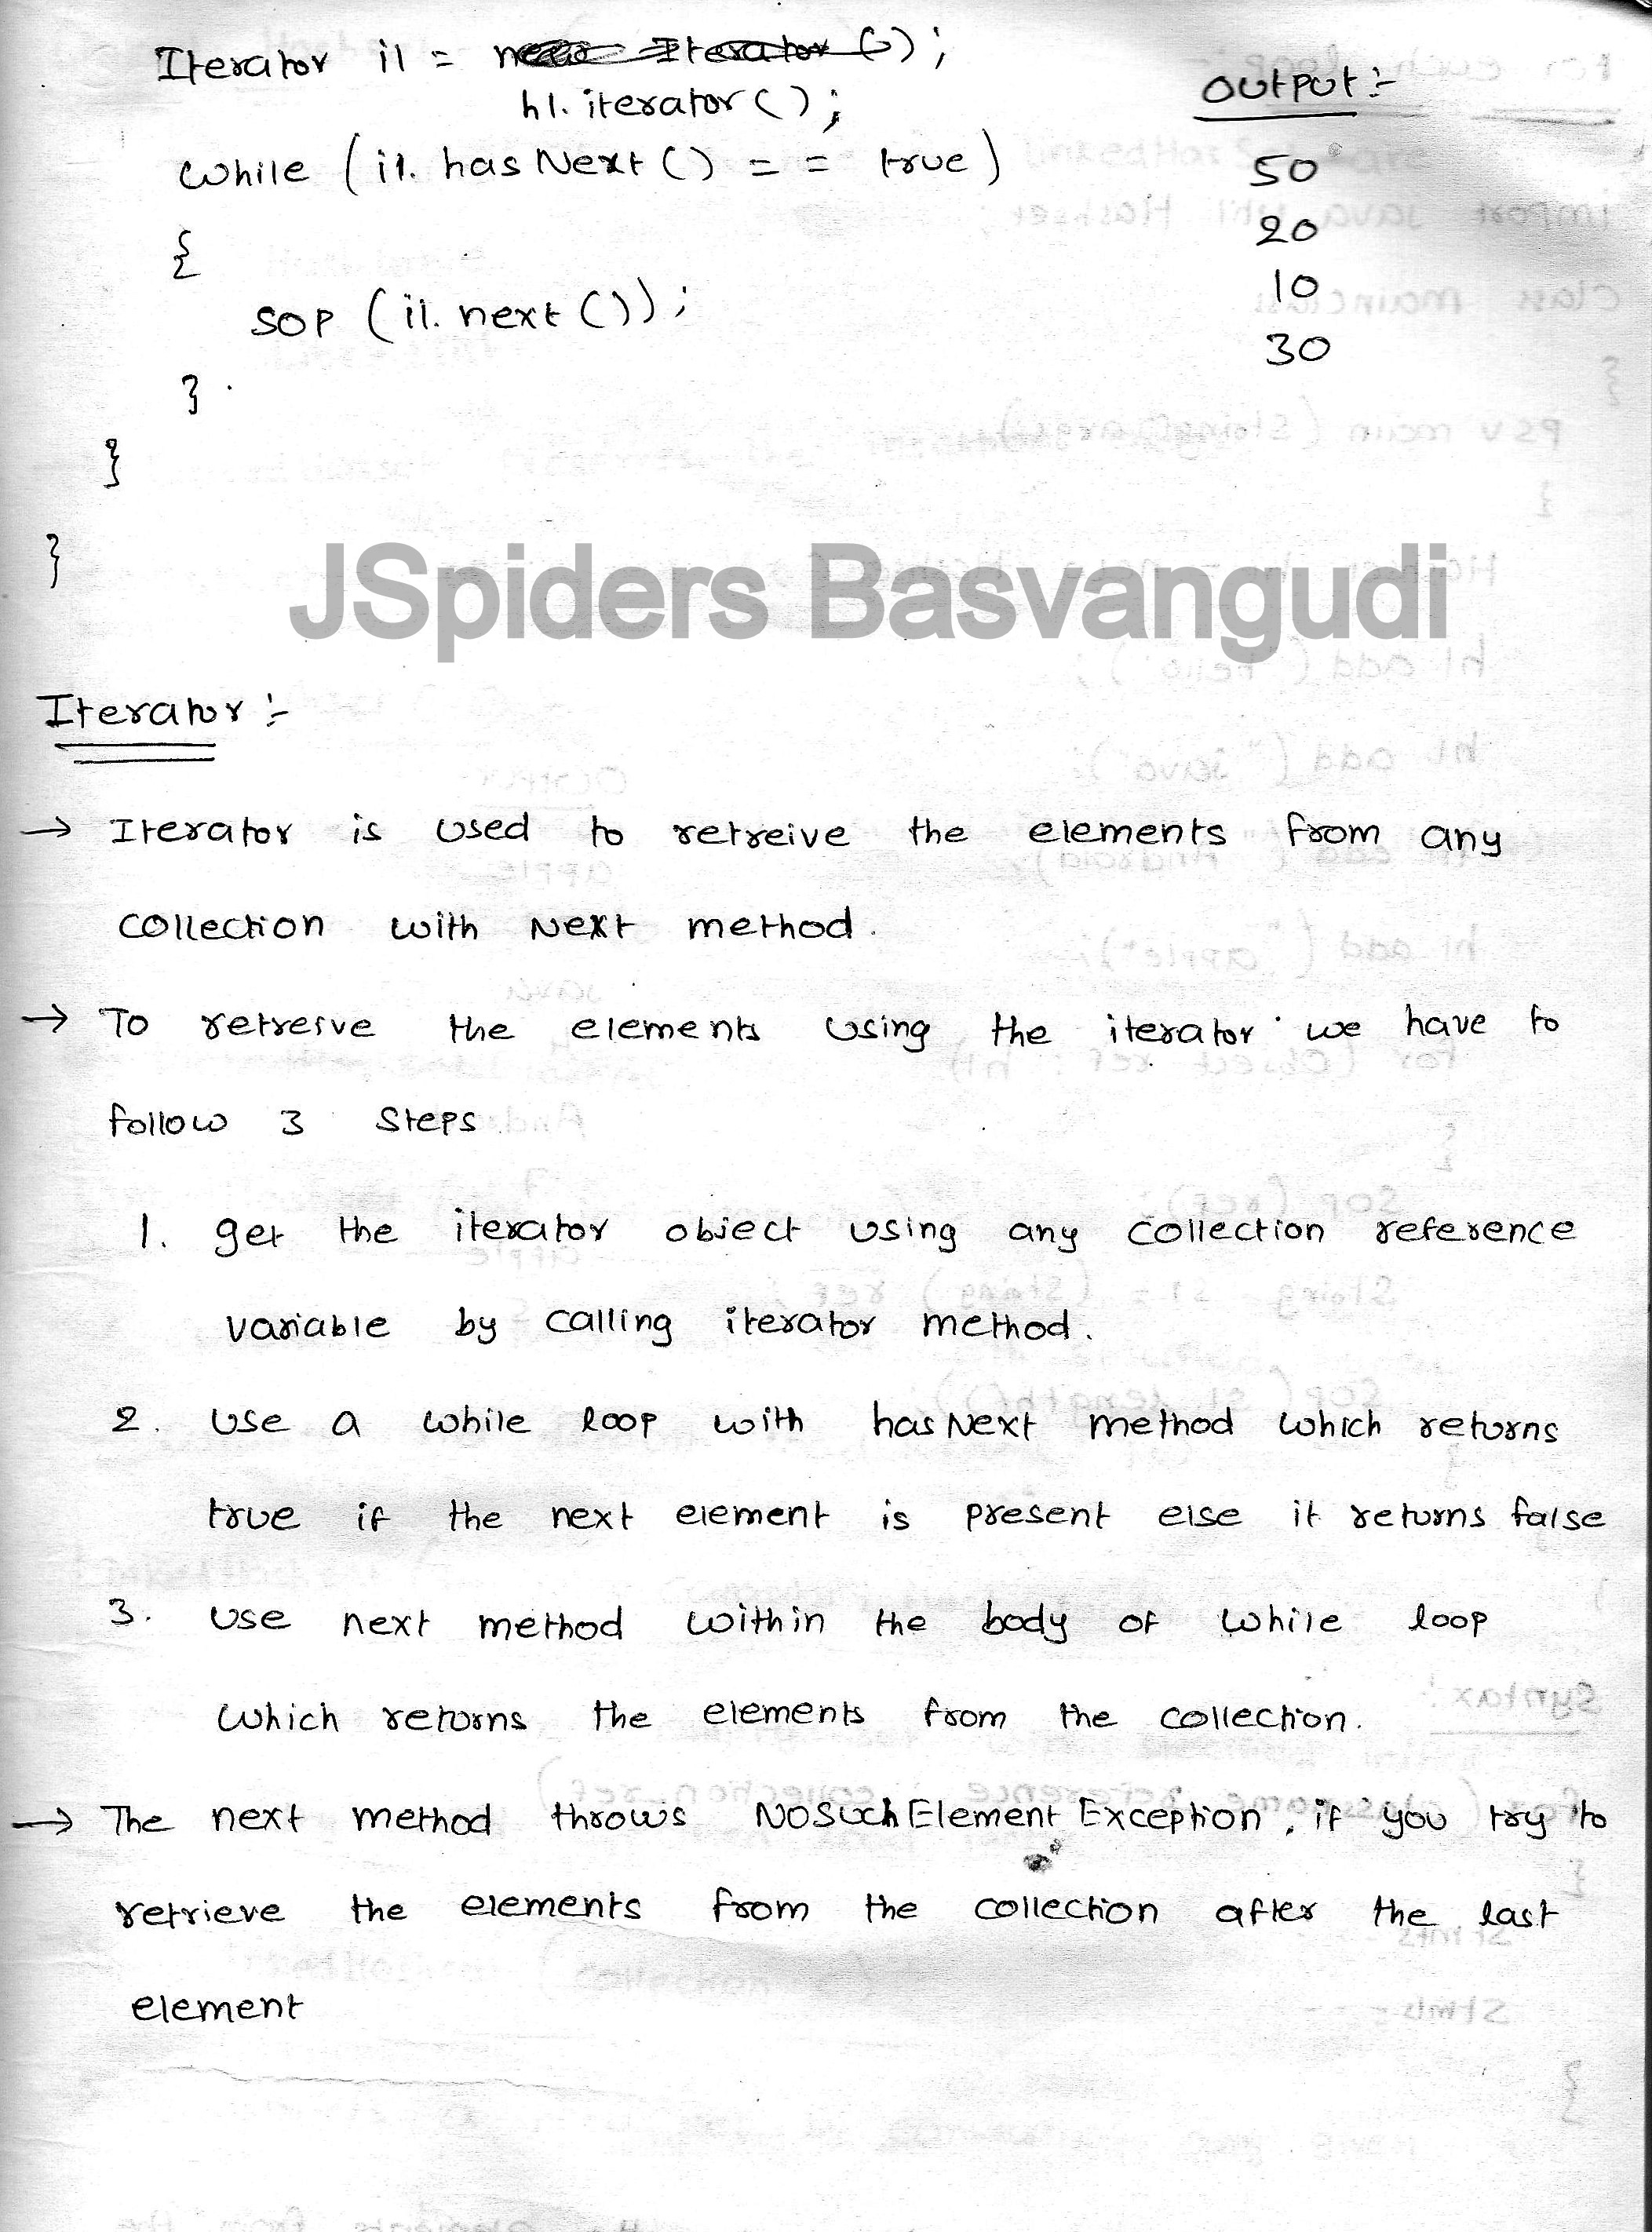 Iterator i1 = new Iterator();
h1.iterator();
while (i1.hasNext() == true)
{
sop (i1.next());
}
}
}
output:-
50
20
10
30
JSpiders Basvangudi
Iterator :-
→ Iterator is used to retreive the elements from any
collection with Next method.
→ To retreive the elements using the iterator we have to
follow 3 steps
1. get the iterator object using any collection reference
variable by calling iterator method.
2. use a while loop with hasNext method which returns
true if the next element is present else it returns false
3. use next method within the body of while loop
which returns the elements from the collection.
→ The next method throws NoSuchElementException, if you try to
retrieve the elements from the collection after the last
element